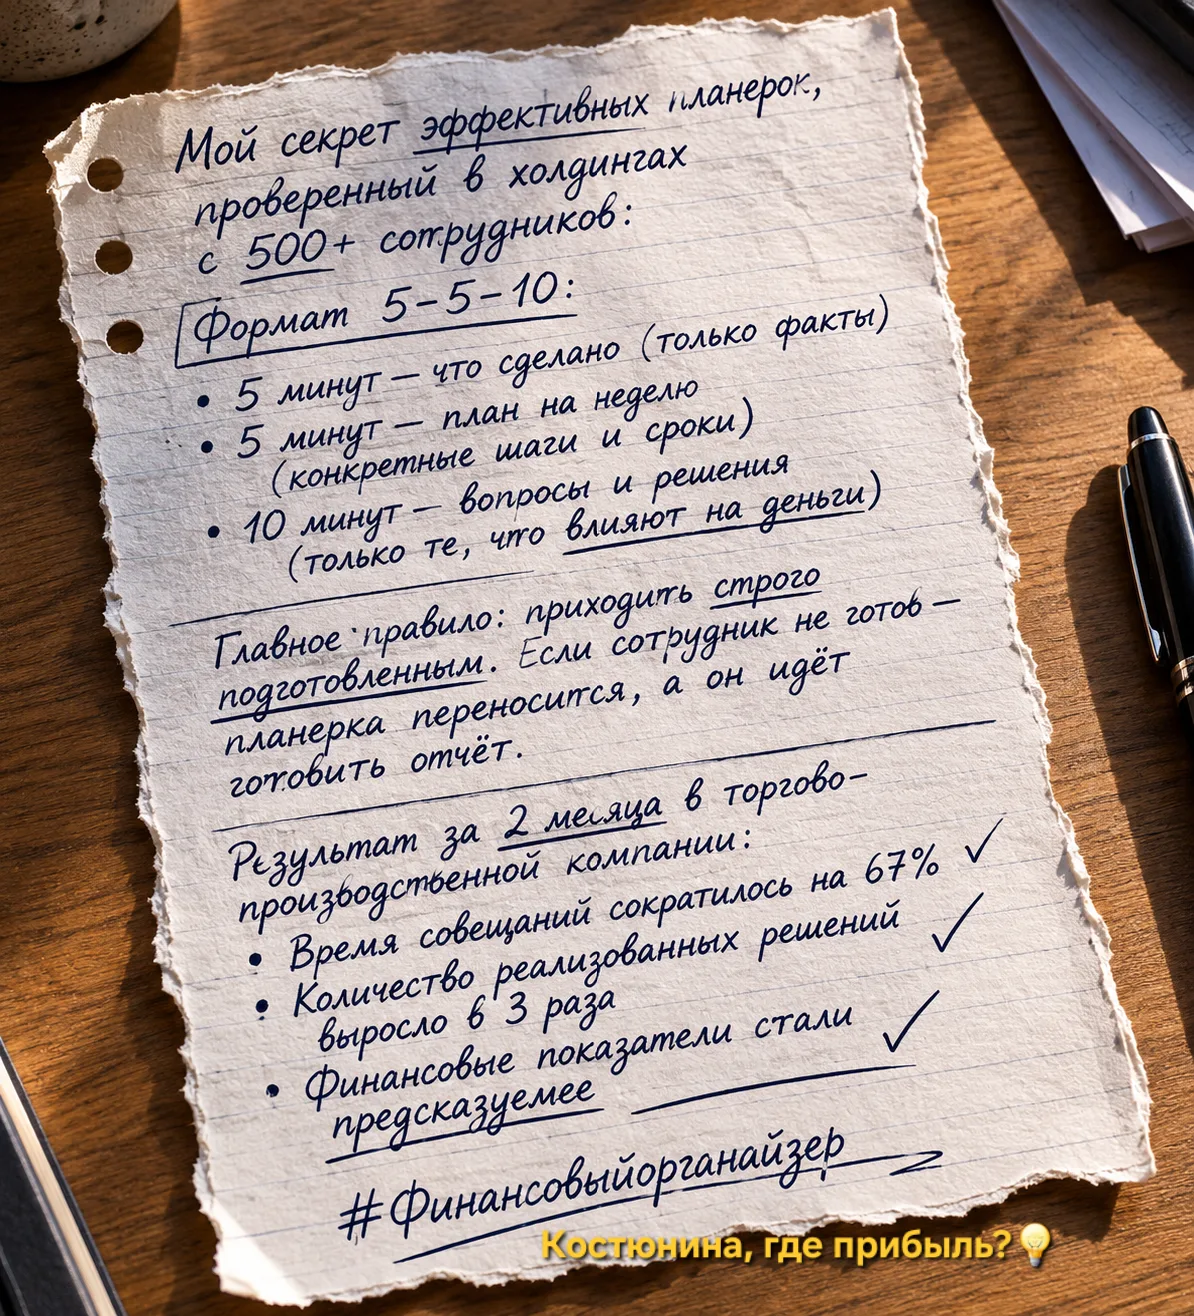 Мой секрет эффективных планерок,
проверенный в холдингах
с 500+ сотрудников:
Формат 5-5-10:
• 5 минут — что сделано (только факты)
• 5 минут — план на неделю
(конкретные шаги и сроки)
• 10 минут — вопросы и решения
(только те, что влияют на деньги)
Главное правило: приходить строго
подготовленным. Если сотрудник не готов —
планерка переносится, а он идёт
готовить отчёт.
Результат за 2 месяца в торгово-
производственной компании:
• Время совещаний сократилось на 67% ✓
• Количество реализованных решений ✓
выросло в 3 раза
• Финансовые показатели стали ✓
предсказуемее
#Финансовыйорганайзер
Костюнина, где прибыль?💡